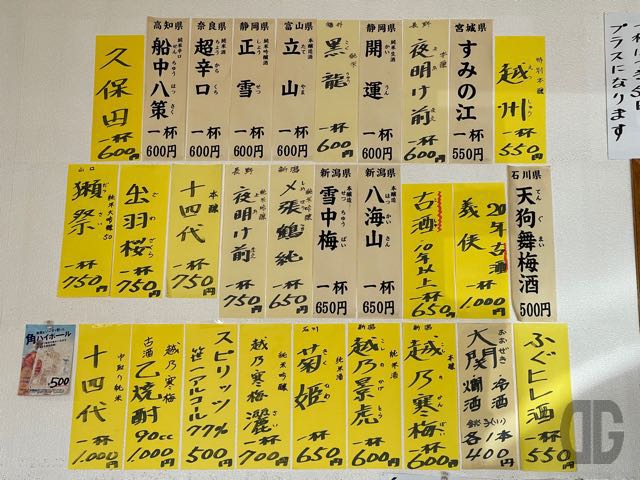 プラスになります
特別本醸
越州
一杯
550円
宮城県
すみの江
一杯
550円
長野
本醸
夜明け前
一杯
600円
静岡県
純米生酒
開運
一杯
600円
福井
純米
黒龍
一杯
600円
富山県
本醸造酒
立山
一杯
600円
静岡県
純米吟醸
正雪
一杯
600円
奈良県
純米酒
超辛口
一杯
600円
高知県
純米辛口
船中八策
一杯
600円
久保田
一杯
600円
石川県
天狗舞梅酒
てんぐまい
500円
20年古酒
義侠
一杯
1.000円
古酒
10年以上
一杯
650円
新潟県
本醸造
八海山
はっかいさん
一杯
650円
新潟県
本醸造
雪中梅
せっちゅうばい
一杯
650円
新潟
純米吟醸
〆張鶴純
一杯
650円
長野
純米吟醸
夜明け前
一杯
750円
本醸
十四代
一杯
750円
出羽桜
でわざくら
一杯
750円
山口
純米大吟醸50
獺祭
だっさい
一杯
750円
ふぐヒレ酒
一杯
550円
大関
おおぜき
冷酒
燗酒
各1本
400円
新潟
本醸
越乃寒梅
一杯
600円
新潟
純米酒
越乃景虎
一杯
600円
石川
純米酒
菊姫
一杯
650円
純米吟醸
越乃寒梅
灑
一杯
700円
スピリッツ
笹一アルコール
77%
500円
越乃寒梅
古酒
乙焼酎
90cc
1.000円
中取り純米
十四代
一杯
1.000円
角ハイボール
500
DG